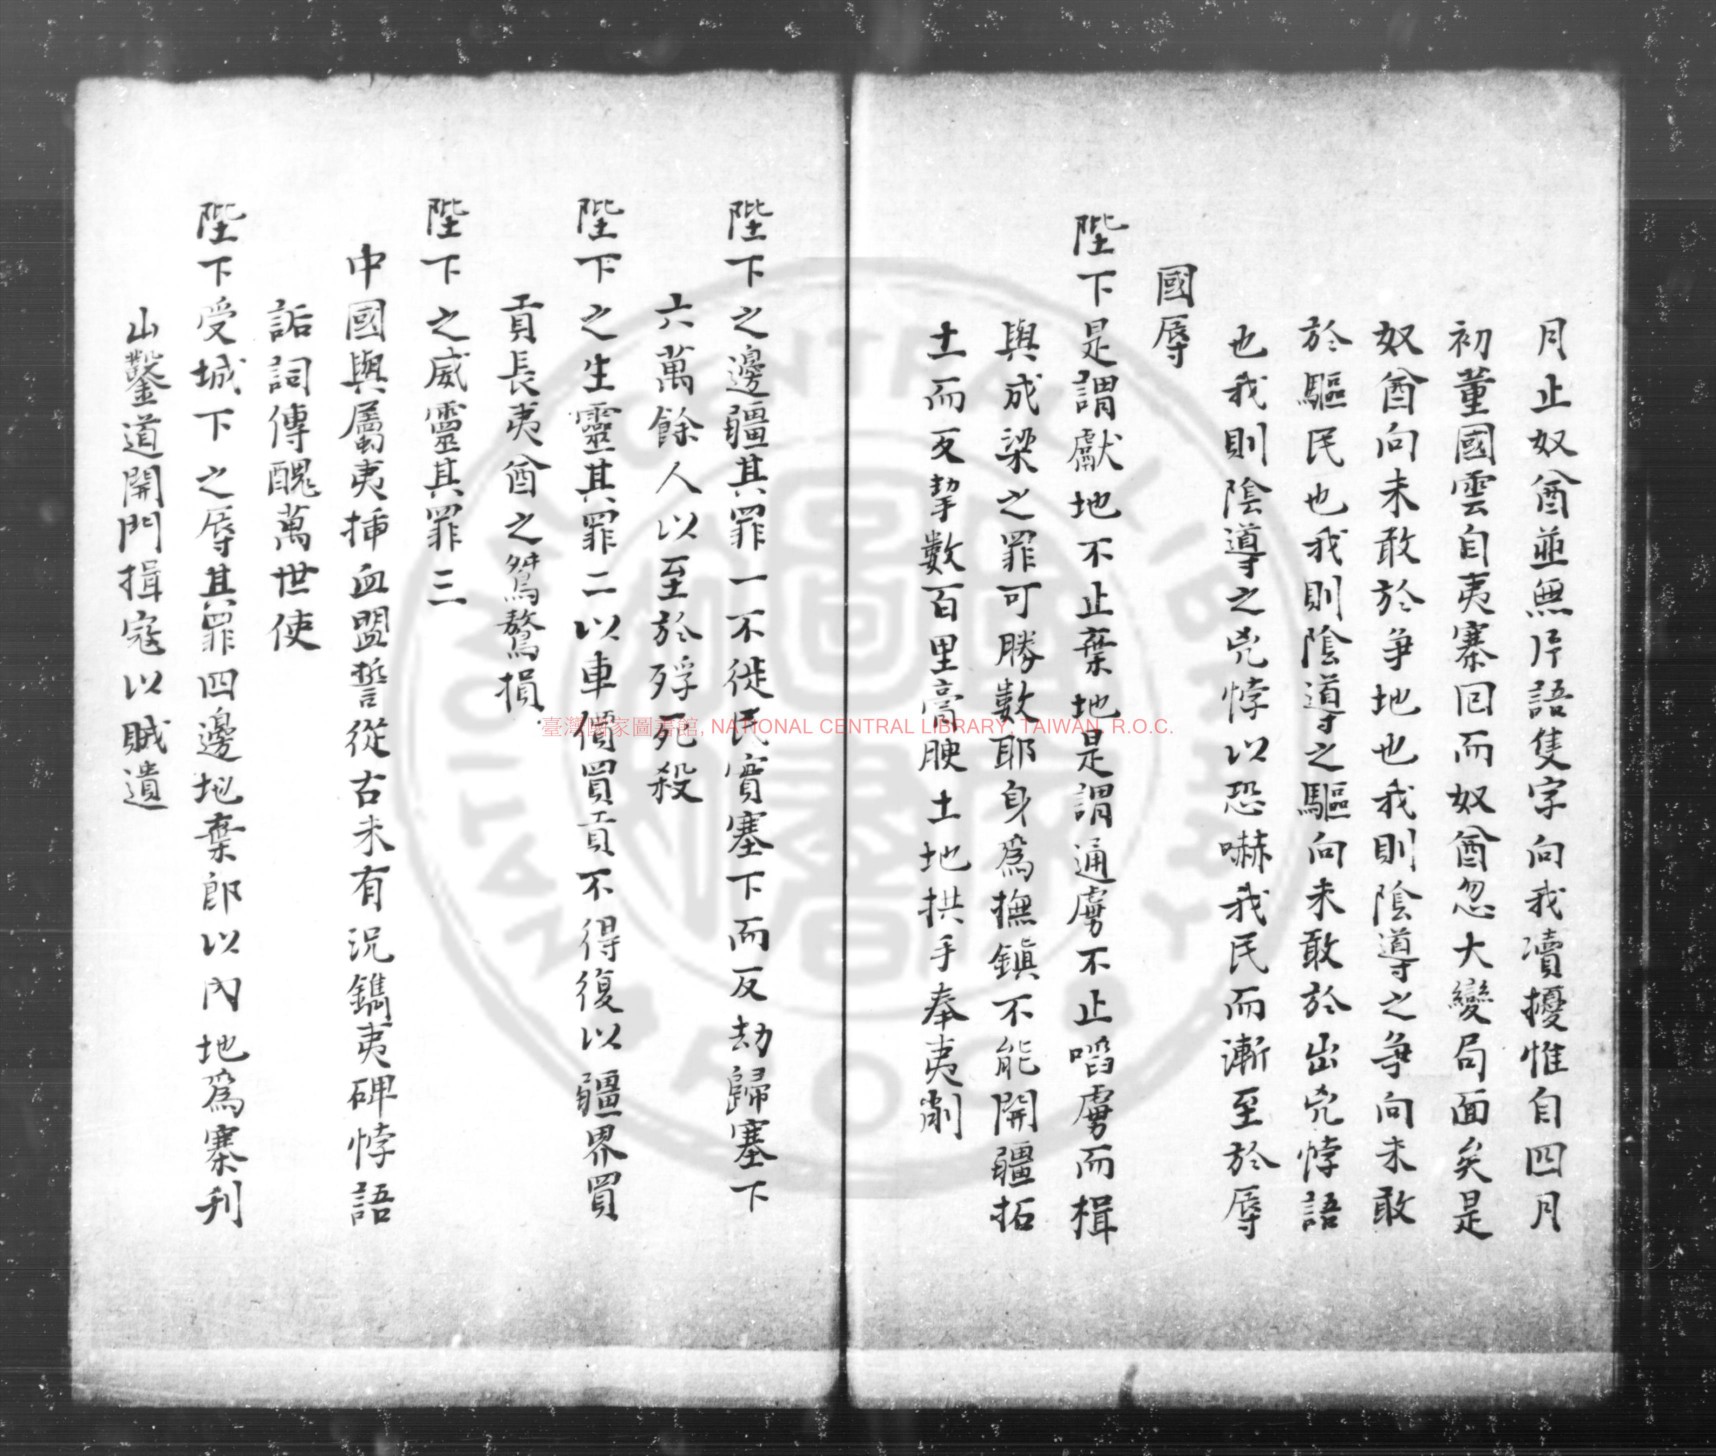 月止奴酋並無片語隻字向我瀆擾惟自四月
初董國雲自夷寨回而奴酋忽大變局面矣是
奴酋向未敢於爭地也我則陰導之爭向未敢
於驅民也我則陰導之驅向未敢於出兇悖語
也我則陰導之兇悖以恐嚇我民而漸至於辱
國辱
陛下是謂獻地不止棄地是謂通虜不止啗虜而楫
與成梁之罪可勝數耶身為撫鎮不能開疆拓
土而反挈數百里膏腴土地拱手奉夷削
陛下之邊疆其罪一不徙民實塞下而反劫歸塞下
六萬餘人以至於殍死殺
陛下之生靈其罪二以車價買貢不得復以疆界買
貢長夷酋之驁損
陛下之威靈其罪三
中國與屬夷揷血盟誓從古未有況鐫夷碑悖語
詬詞傳醜萬世使
陛下受城下之辱其罪四邊地棄郎以內地為寨刋
山鑿道開門揖寇以賊遺
臺灣國家圖書館, NATIONAL CENTRAL LIBRARY, TAIWAN, R.O.C.
NATIONAL CENTRAL LIBRARY
R.O.C.